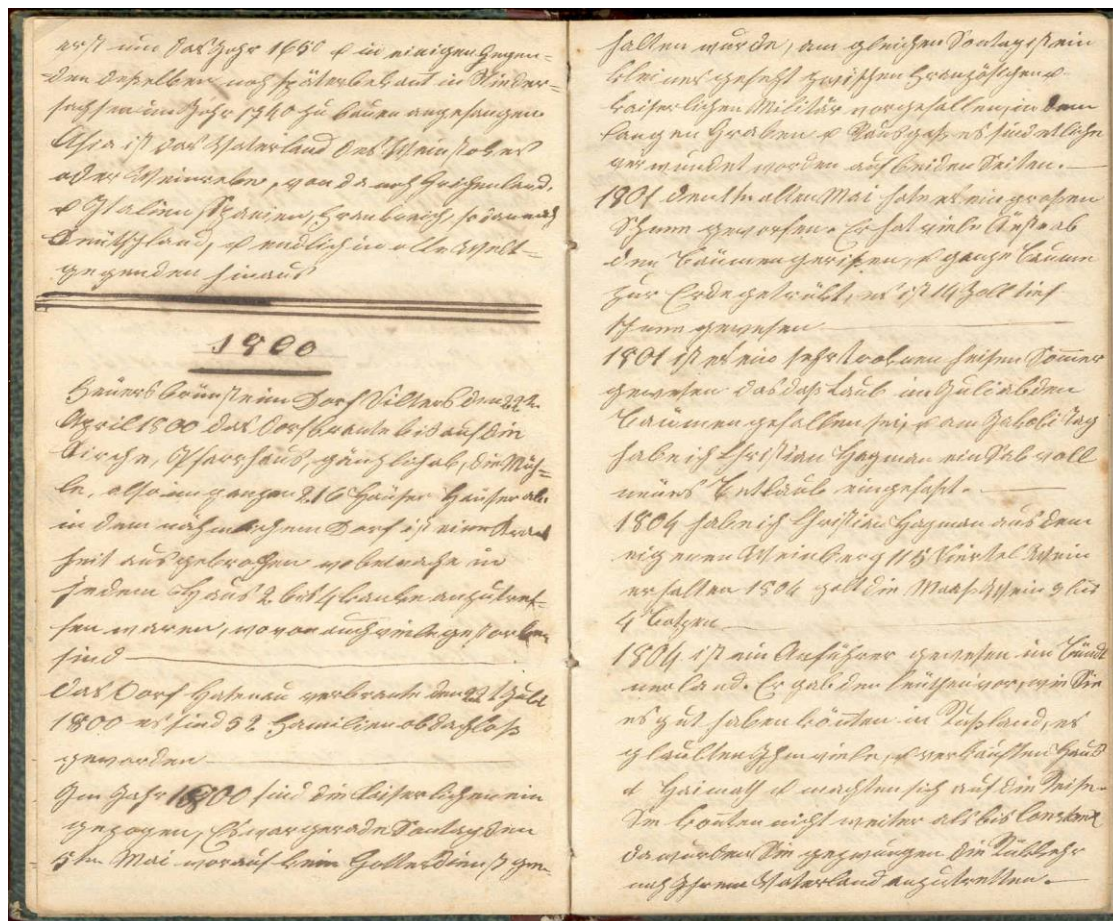 erst um das Jahr 1650 & in einigen Gegen=
den deselben noch später bekant in Nieder=
sachsen im Jahr 1740 zu bauen angefangen
Asia ist das Vaterland des Weinstokes
oder Weinrebe, von da nach Grichenland.
& Italien, Spanien, Frankreich, so dann nach
Deutschland, & endlich in alle Welt=
gegenden hinaus
1800
Feuersbrünste im Dorf Vilters den 22t.
April 1800 das Dorf brante bis auf die
Kirche, Pfarrhaus, gänzlich ab, die Müh=
le, also im ganzen 216 Häuser
in dem nähmlichem Dorf ist eine Krank
heit ausgebrochen wo beinache in
jedem Haus 2 bis 4 kranke anzutref=
fen waren, wovon auch viele gestorben
sind
Das Dorf Hatenau verbrante den 22t Juli
1800 es sind 52 Familien obdachloß
geworden
Im Jahr 1800 sind die Kaiserlichen ein
gezogen, Es war gerade Sontag den
5ten Mai worauf kein Gottesdienst ge=
halten wurde, am gleichen Sontag ist ein
kleines gefecht zwischen Französischen &
Kaiserlichen Militär vorgefallen, in dem
langen Graben & es sind etliche
verwundet worden auf beiden Seiten.
1801 den alten Mai hate es ein großen
Schnee geworfen. Er hat viele Äste ab
den Bäumen gerißen, & ganze Bäume
zur Erde gedrükt, es ist 14 Zoll tief
Schnee gewesen
1801 ist es ein sehr troknen heisen Sommer
gewesen das daß Laub im Juli ab den
Bäumen gefallen sei, & am Jakobi Tag
habe ich Christian Hagman ein voll
neues Betlaub eingefaßt.
1804 habe ich Christian Hagman aus dem
eigenen Weinberg 115 Viertel Wein
erhalten 1804 galt die Maaß Wein 3 bis
4 Batzen
1804 ist ein Anführer gewesen im Bündt
nerland. Er gab den Leuthen vor, wie Sie
es gut haben könten in Rußland, es
glaubten Ihm viele, & verkauften Haus
& Haimath & machten sich auf die Reise.
Sie konten nicht weiter als bis
da wurden Sie gezwungen die Rükkehr
nach Ihrem Vaterland anzutretten.